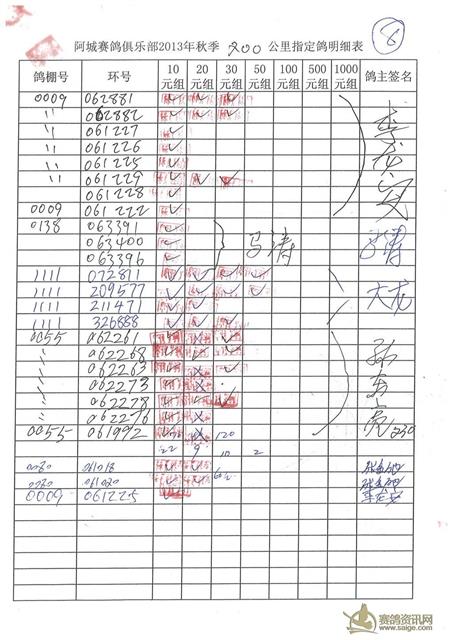 8
阿城赛鸽俱乐部2013年秋季 200 公里指定鸽明细表
鸽棚号 环号 10元组 20元组 30元组 50元组 100元组 500元组 1000元组 鸽主签名
0009 062881
" 062882
" 061227
" 061226
" 061225
" 061229
061228
0009 061222
0138 063391
063400 马涛
063396
1111 072811
1111 209577
1111 211471 大龙
1111 326888
0055 062261
" 062268
" 062263
" 062273
" 062278
" 062276
0055 061992 120
22 9 10 2
061018
061020
0009 061225
赛鸽资讯网
www.saige.com